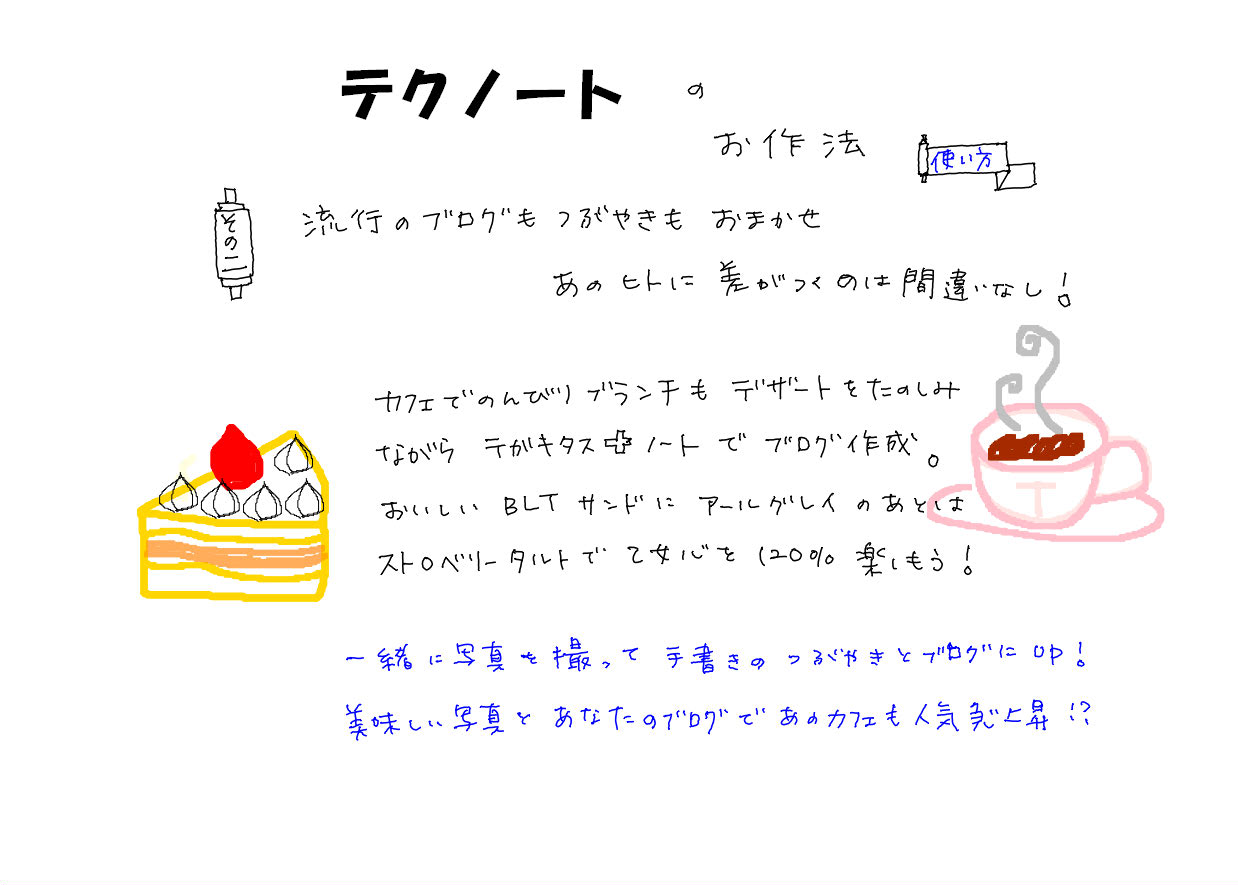 テクノート の
お作法
使い方
その二
流行のブログもつぶやきも おまかせ
あのヒトに差がつくのは間違いなし!
カフェでのんびりブランチも デザートをたのしみ
ながら テガキタス+ノートで ブログ作成。
おいしい BLTサンドに アールグレイのあとは
ストロベリータルトで 乙女心を 120% 楽しもう!
T
一緒に写真を撮って 手書きの つぶやきとブログにUP!
美味しい写真と あなたのブログで あのカフェも人気急上昇!?